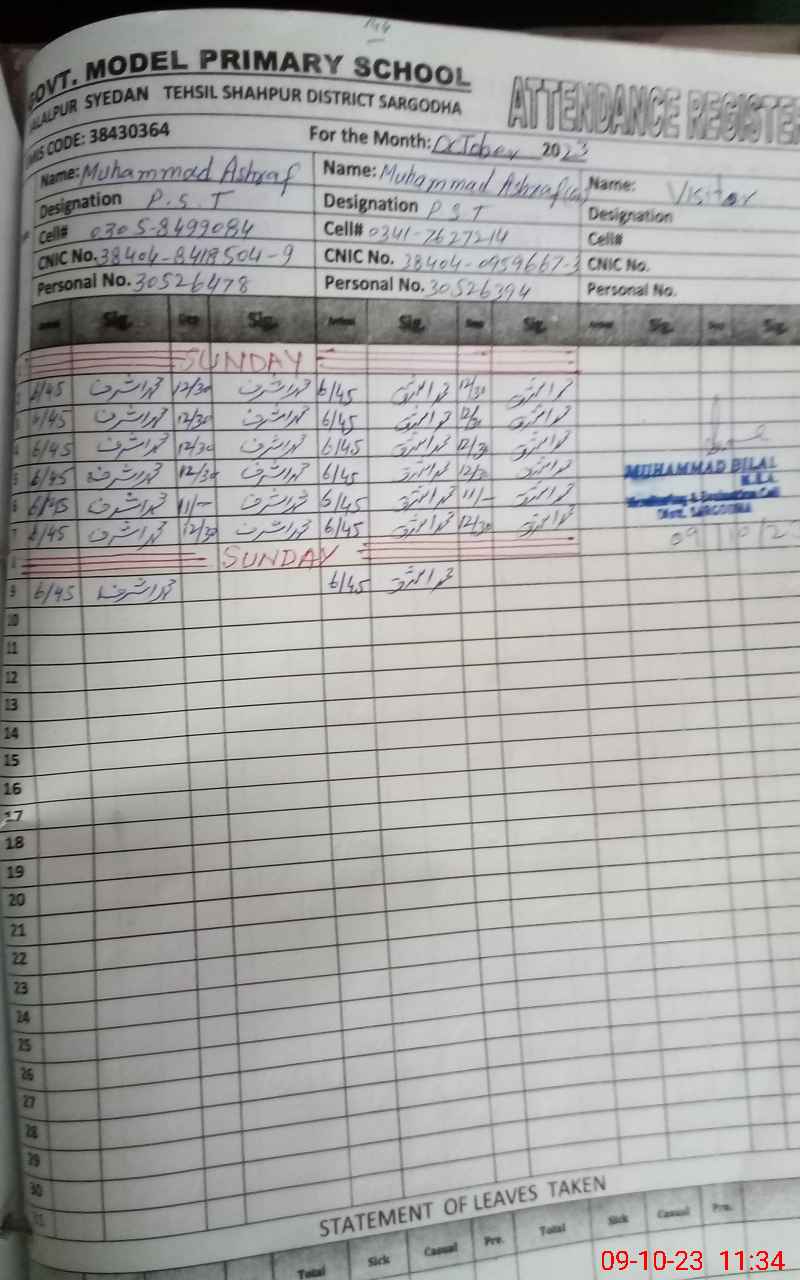 GOVT. MODEL PRIMARY SCHOOL
JALALPUR SYEDAN TEHSIL SHAHPUR DISTRICT SARGODHA
ATTENDANCE REGISTER
EMIS CODE: 38430364 For the Month: October 2023
Name: Muhammad Ashraf Name: Muhammad Ashraf Name: Visitor
Designation P.S.T Designation PST Designation
Cell# 0305-8499084 Cell# 0341-7627214 Cell#
CNIC No. 38404-8418504-9 CNIC No. 38404-0959667-3 CNIC No.
Personal No. 30526478 Personal No. 30526394 Personal No.
Sig. Sig. Sig. Sig. Sig. Sig.
1 SUNDAY
2 6/45 محمد اشرف 12/30 محمد اشرف 6/45 محمد اشرف 12/30 محمد اشرف
3 6/45 محمد اشرف 12/30 محمد اشرف 6/45 محمد اشرف 12/30 محمد اشرف
4 6/45 محمد اشرف 12/30 محمد اشرف 6/45 محمد اشرف 12/30 محمد اشرف
5 6/45 محمد اشرف 12/30 محمد اشرف 6/45 محمد اشرف 12/30 محمد اشرف
MUHAMMAD BILAL
M.E.A
Monitoring & Evaluation Cell
Distt. SARGODHA
6 6/45 محمد اشرف 11/- محمد اشرف 6/45 محمد اشرف 11/- محمد اشرف
7 6/45 محمد اشرف 12/30 محمد اشرف 6/45 محمد اشرف 12/30 محمد اشرف
09/10/23
8 SUNDAY
9 6/45 محمد اشرف 6/45 محمد اشرف
10
11
12
13
14
15
16
17
18
19
20
21
22
23
24
25
26
27
28
29
30
31
STATEMENT OF LEAVES TAKEN
Total Sick Casual Pre. Total Sick Casual Pre.
09-10-23 11:34